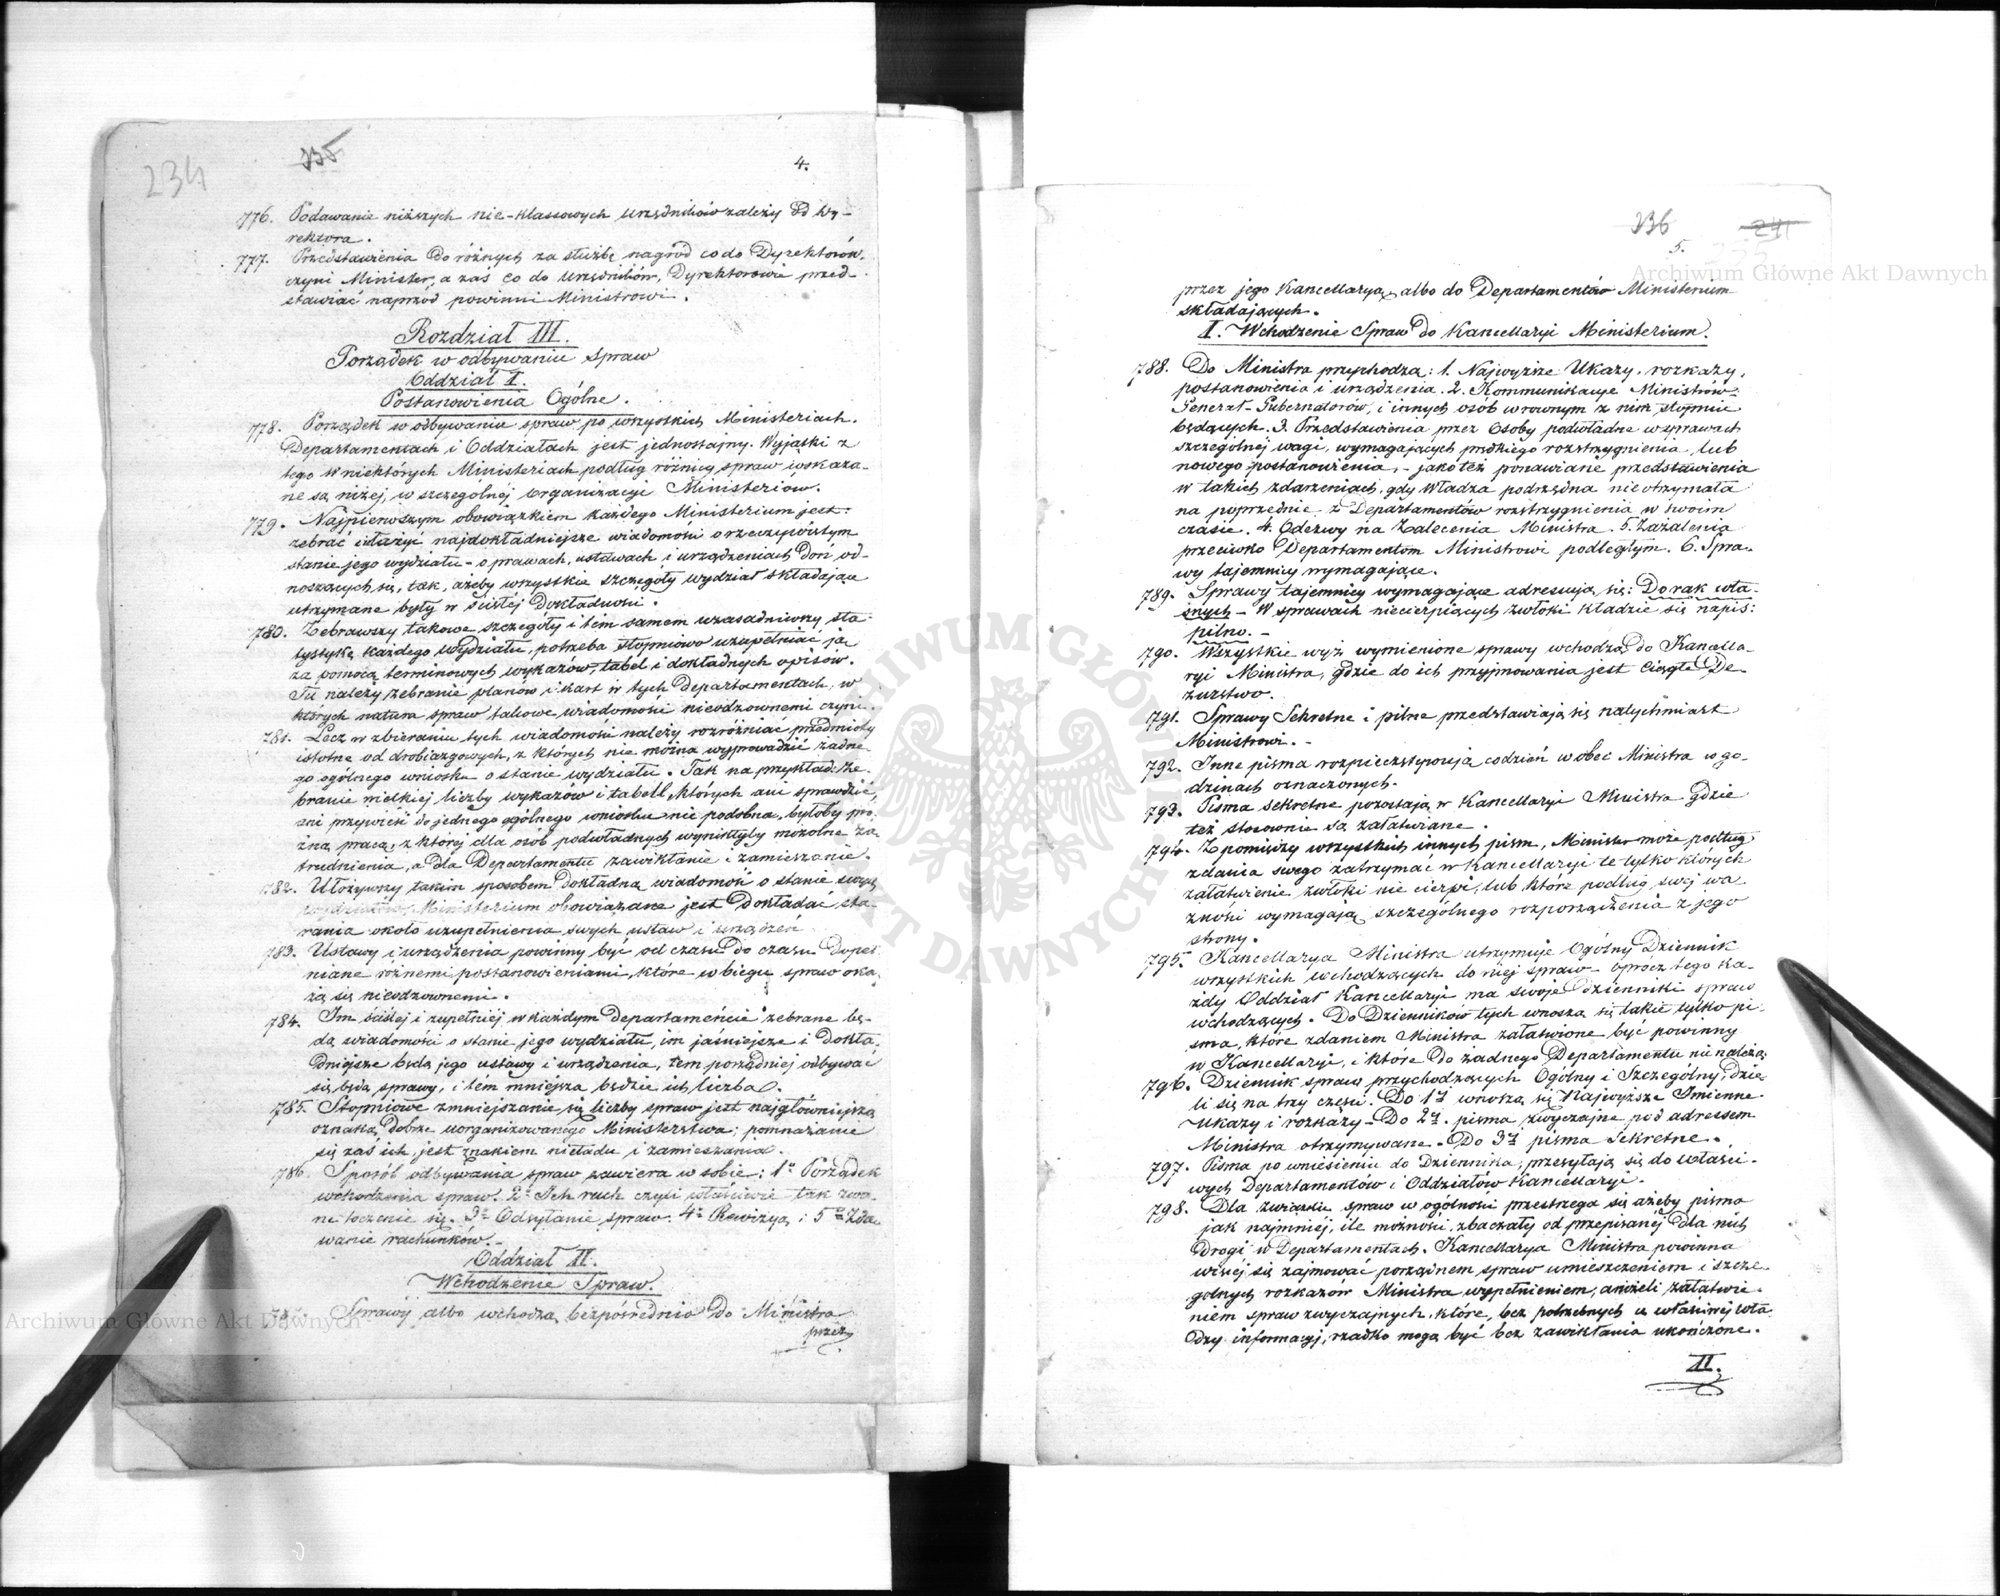 234
235
4.
776. Podawanie niższych nie-klassowych urzędników zależy od Dy-
rektora.
777. Przedstawienia do różnych za służbę nagród co do Dyrektorów,
czyni Minister, a zaś co do Urzędników, Dyrektorowie przed-
stawiać naprzód powinni Ministrowi.
Rozdział III.
Porządek w odbywaniu spraw
Oddział I.
Postanowienia Ogólne.
778. Porządek w odbywaniu spraw po wszystkich Ministeriach.
Departamentach i Oddziałach jest jednostajny. Wyjątki z
tego w niektórych Ministeriach podług różnicy spraw wskaza-
ne są niżej, w szczególnej organizacyi Ministeriów.
779. Najpierwszym obowiązkiem każdego Ministerium jest:
zebrać i złożyć najdokładniejsze wiadomości o rzeczywistym
stanie jego wydziału - o prawach, ustawach i urządzeniach doń od-
noszących się, tak, ażeby wszystkie szczegóły wydział składające
utrzymane były w ścisłej dokładności.
780. Zebrawszy takowe szczegóły i tém samem uzasadniwszy sta-
tystykę każdego wydziału, potrzeba stopniowo uzupełniać ją
za pomocą terminowych wykazów, tabel i dokładnych opisów.
Tu należy zebranie planów i kart w tych Departamentach, w
których natura spraw takowe wiadomości nieodzownemi czyni.
781. Lecz w zbieraniu tych wiadomości należy rozróżniać przedmioty
istotne od drobiazgowych, z których nie można wyprowadzić żadne-
go ogólnego wniosku o stanie wydziału. Tak na przykład: Ze-
branie wielkiej liczby wykazów i tabell, których ani sprawdzić,
ani przywieść do jednego ogólnego wniosku nie podobna, byłoby pró-
żną pracą, z której dla osób podwładnych wyniknęłyby mozolne za-
trudnienia, a dla Departamentu zawikłanie i zamieszanie.
782. Ułożywszy takim sposobem dokładną wiadomość o stanie swych
wydziałów, Ministerium obowiązane jest dokładać sta-
rania około uzupełnienia swych ustaw i urządzeń
783. Ustawy i urządzenia powinny być od czasu do czasu dopeł-
niane różnemi postanowieniami, które w biegu spraw oka-
żą się nieodzownemi.
784. Im ściślej i zupełniej w każdym Departamencie zebrane bę-
dą wiadomości o stanie jego wydziału, im jaśniejsze i dokła-
dniejsze będą jego ustawy i urządzenia, tem porządniej odbywać
się będą sprawy, i tém mniejsza będzie ich liczba.
785. Stopniowe zmniejszanie się liczby spraw jest najgłówniejszą
oznaką dobrze uorganizowanego Ministerstwa; pomnażanie
się zaś ich, jest znakiem nieładu i zamieszania.
786. Sposób odbywania spraw zawiera w sobie: 1º Porządek
wchodzenia spraw. 2º Ich ruch czyli właściwie tak zwa-
ne toczenie się. 3º Odsyłanie spraw. 4º Rewizyą i 5º Zda-
wanie rachunków. -
Oddział II.
Wchodzenie Spraw.
787. Sprawy albo wchodzą bezpośrednio do Ministra
przez
236
241
5.
przez jego Kancellaryą, albo do Departamentów Ministerium
składających.
I. Wchodzenie Spraw do Kancellaryi Ministerium.
788. Do Ministra przychodzą: 1. Najwyższe Ukazy, rozkazy,
postanowienia i urządzenia. 2. Kommunikacye Ministrów -
Generał-Gubernatorów, i innych osób w rownym z nim stopniu
będących. 3. Przedstawienia przez Osoby podwładne w sprawach
szczególnej wagi, wymagających prędkiego rozstrzygnienia, lub
nowego postanowienia, - jakoteż ponawiane przedstawienia
w takich zdarzeniach, gdy Władza podrzędna nie otrzymała
na poprzednie z Departamentów rozstrzygnienia w swoim
czasie. 4. Odezwy na Zalecenia Ministra. 5. Zażalenia
przeciwko Departamentom Ministrowi podległym. 6. Spra-
wy tajemnicy wymagające.
789. Sprawy tajemnicy wymagające adresują się: Do rąk wła-
snych - W sprawach niecierpiących zwłoki kładzie się napis:
pilno. -
790. Wszystkie wyż wymienione sprawy wchodzą do Kancella-
ryi Ministra, gdzie do ich przyjmowania jest ciągłe De-
żurstwo.
791. Sprawy Sekretne i pilne przedstawiają się natychmiast
Ministrowi. -
792. Inne pisma rozpieczętywują codzień w obec Ministra w go-
dzinach oznaczonych.
793. Pisma sekretne pozostają w Kancellaryi Ministra gdzie
też stosownie są załatwiane.
794. Z pomiędzy wszystkich innych pism, Minister może podług
zdania swego zatrzymać w Kancellaryi te tylko których
załatwienie zwłoki nie cierpi, lub które podług swej wa-
żności wymagają szczególnego rozporządzenia z jego
strony.
795. Kancellarya Ministra utrzymuje Ogólny Dziennik
wszystkich wchodzących do niej spraw - oprócz tego ka-
żdy Oddział Kancellaryi ma swoje dzienniki spraw
wchodzących. Do Dzienników tych wnoszą się takie tylko pi-
sma, które zdaniem Ministra załatwione być powinny
w Kancellaryi, i które do żadnego Departamentu nie należą.
796. Dziennik spraw przychodzących Ogólny i Szczególny, dzie-
li się na trzy części. Do 1éj wnoszą się Najwyższe Imienne
Ukazy i rozkazy - Do 2éj. pisma zwyczajne pod adressem
Ministra otrzymywane. - Do 3éj pisma Sekretne.
797. Pisma po wniesieniu do Dziennika, przesyłają się do właści-
wych Departamentów i Oddziałów Kancellaryi.
798. Dla związku spraw w ogólności przestrzega się ażeby pisma
jak najmniej, ile możności, zbaczały od przepisanej dla nich
drogi w Departamentach. Kancellarya Ministra powinna
więcej się zajmować porządnem spraw umieszczeniem i szcze-
gólnych rozkazów Ministra wypełnieniem, aniżeli załatwie-
niem spraw zwyczajnych, które, bez potrzebnych u właściwej wła-
dzy informacyj, rzadko mogą być bez zawikłania ukończone.
II.
Archiwum Główne Akt Dawnych
Archiwum Główne Akt Dawnych
ARCHIWUM GŁÓWNE AKT DAWNYCH